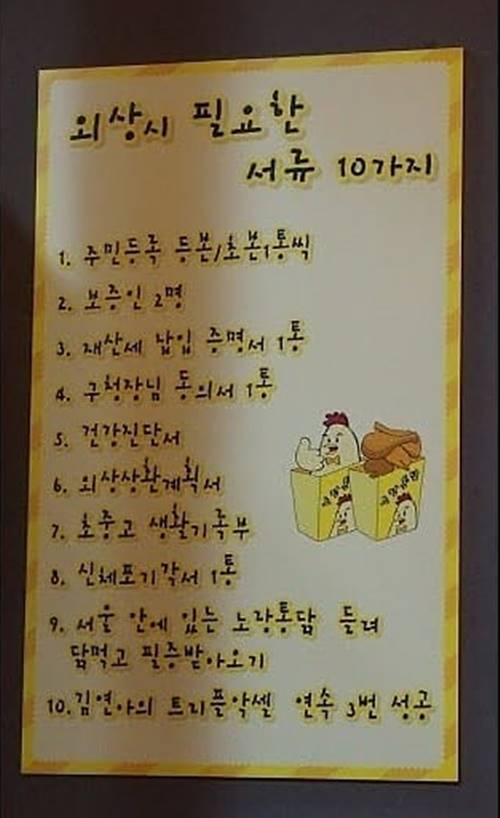 외상시 필요한
서류 10가지
1. 주민등록 등본/초본1통씩
2. 보증인 2명
3. 재산세 납입 증명서 1통
4. 구청장님 동의서 1통
5. 건강진단서
6. 외상상환계획서
7. 초중고 생활기록부
8. 신체포기각서 1통
9. 서울 안에 있는 노랑통닭 들려
닭먹고 필증받아오기
10. 김연아의 트리플악셀 연속 3번 성공